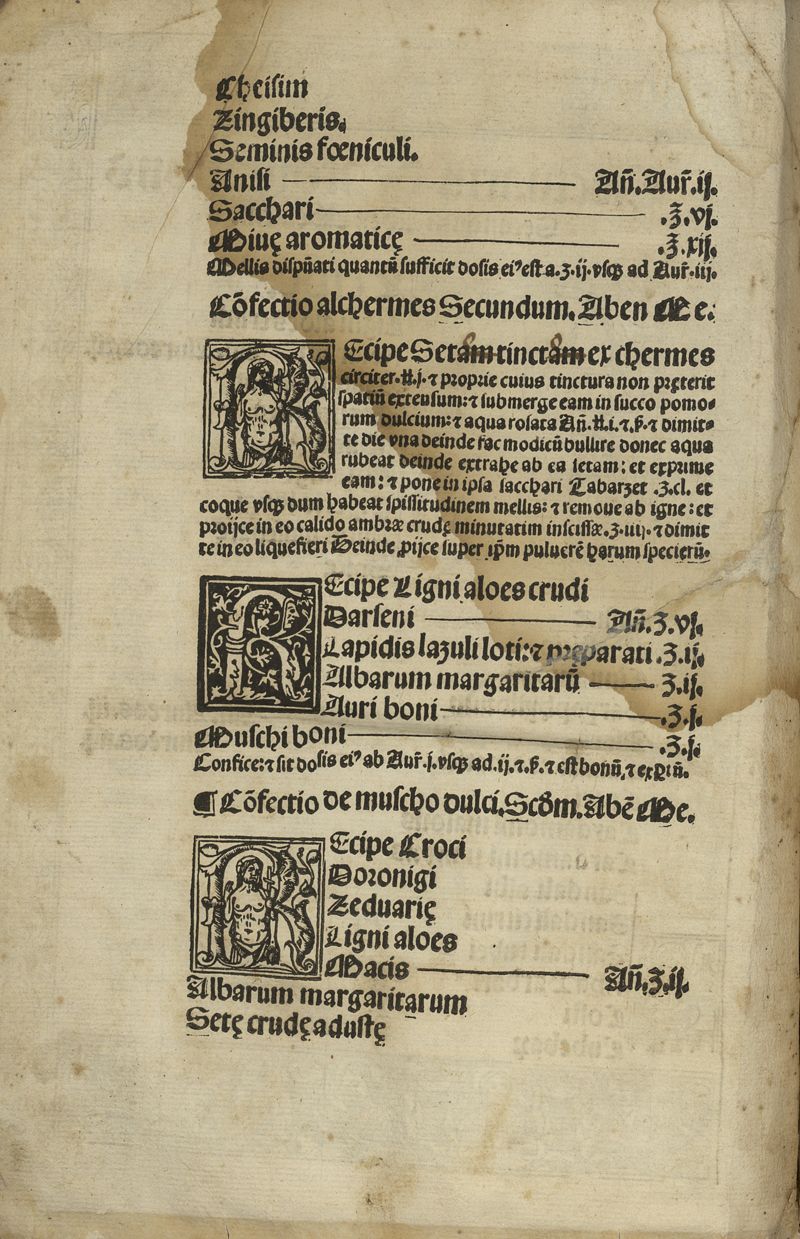 Cheisim
Zingiberis.
Seminis fœniculi.
Anisi — Añ.Aur̃.ij.
Sacchari — .ʒ.vj.
Miuę aromaticę — .ʒ.xij.
Mellis dispũati quantũ sufficit dosis eiꝰ est a.ʒ.ij.vsqꝫ ad Aur̃.iij.
Cõfectio alchermes Secundum.Aben Me.
REcipe Setam tinctam ex chermes
circiter.℔.j.⁊ proprie cuius tinctura non pręterit
spatiũ extensum:⁊ submerge eam in succo pomo⸗
rum dulcium:⁊ aqua rosata Añ.℔.i.⁊.ß.⁊ dimit⸗
te die vna deinde fac modicũ bullire donec aqua
rubeat deinde extrahe ab ea setam: et exprime
eam:⁊ pone in ipsa sacchari Tabarzet .ʒ.cl. et
coque vsqꝫ dum habeat spissitudinem mellis:⁊ remoue ab igne: et
proijce in eo calido ambræ crudę minutatim inscissæ.ʒ.iiij.⁊ dimit
te in eo liquefieri Deinde ꝓijce super ip̃m puluerẽ harum specierũ.
REcipe Ligni aloes crudi
Darseni — Añ.ʒ.vj.
Lapidis lazuli loti:⁊ pręparati .ʒ.ij.
Albarum margaritarũ — ʒ.ij.
Auri boni — .ʒ.j.
Muschi boni — .ʒ.j.
Confice:⁊ sit dosis eiꝰ ab Aur̃.j.vsqꝫ ad.ij.⁊.ß.⁊ est bonũ,⁊ exꝑtũ.
¶ Cõfectio de muscho dulci.Scðm.Abẽ Me.
REcipe Croci
Doronigi
Zeduarię
Ligni aloes
Macis — Añ.ʒ.ij.
Albarum margaritarum
Setę crudę adustę